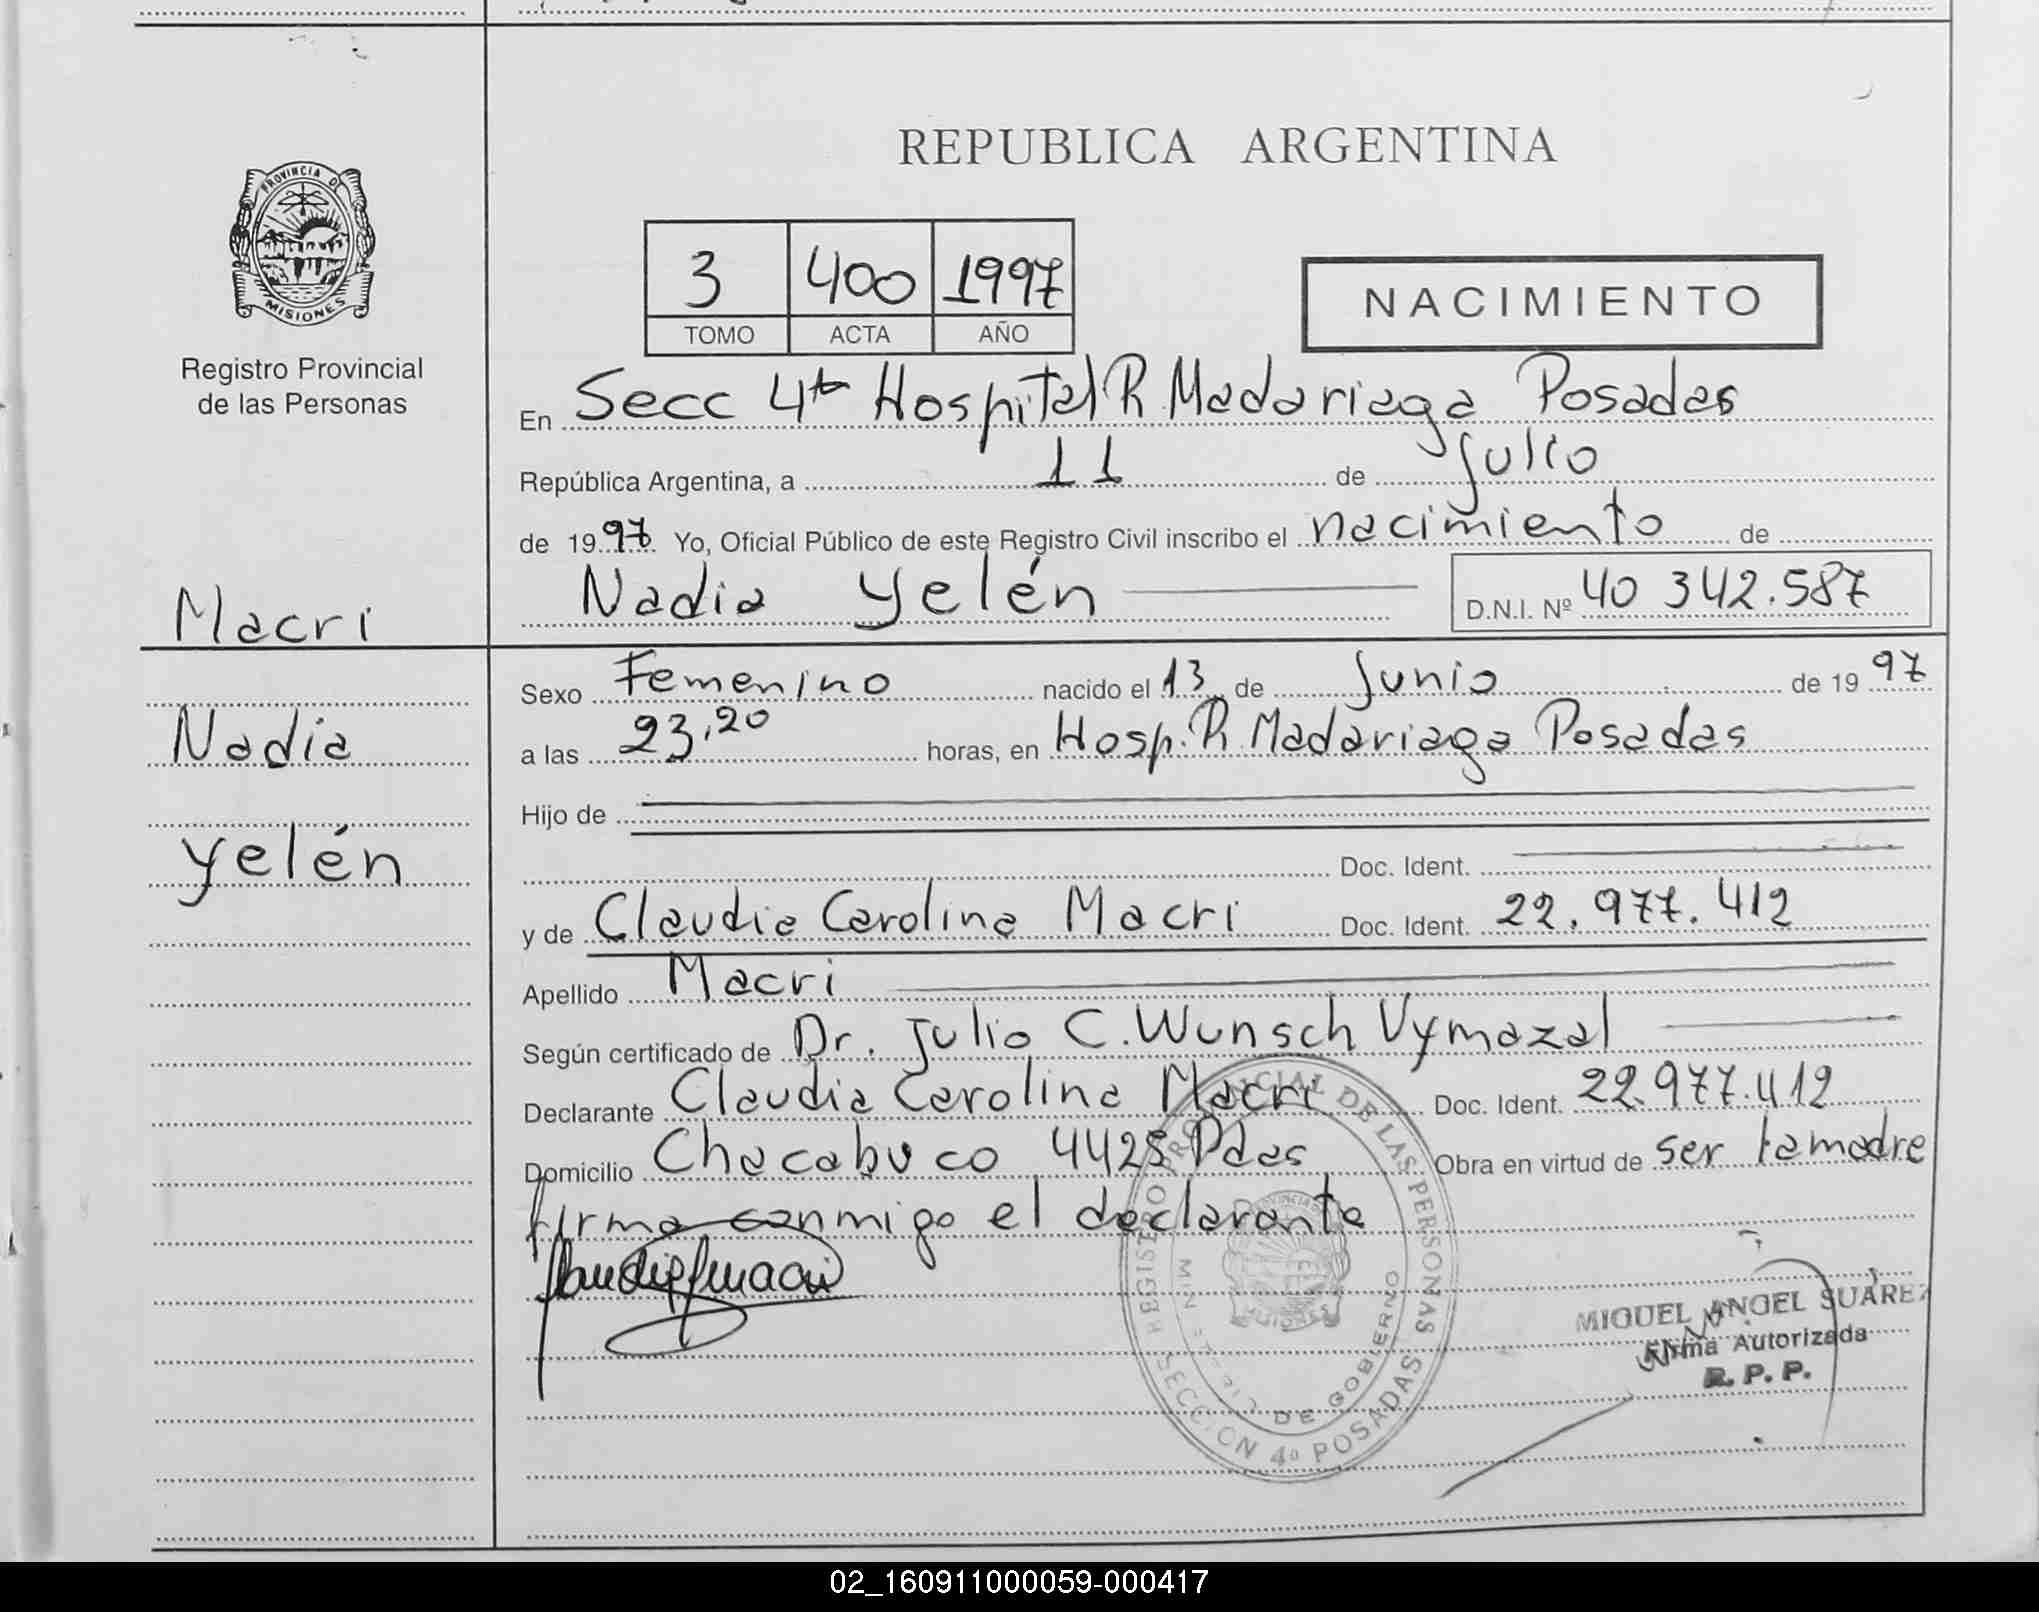 REPUBLICA ARGENTINA
PROVINCIA DE
MISIONES
Registro Provincial
de las Personas
3 400 1997
TOMO ACTA AÑO
NACIMIENTO
En Secc 4ta Hospital R. Madariaga Posadas
República Argentina, a 11 de julio
de 1997 Yo, Oficial Público de este Registro Civil inscribo el nacimiento de
Nadia Yelén D.N.I. Nº 40 342.587
Macri
Nadia
Yelén
Sexo Femenino nacido el 13 de Junio de 1997
a las 23,20 horas, en Hosp. R. Madariaga Posadas
Hijo de
Doc. Ident.
y de Claudia Carolina Macri Doc. Ident. 22.977.412
Apellido Macri
Según certificado de Dr. Julio C. Wunsch Vymazal
Declarante Claudia Carolina Macri Doc. Ident. 22.977.412
Domicilio Chacabuco 4428 Pdas Obra en virtud de ser la madre
firma conmigo el declarante
REGISTRO PROVINCIAL DE LAS PERSONAS
DE GOBIERNO
SECCION 4º POSADAS
MIGUEL ANGEL SUAREZ
Firma Autorizada
R. P. P.
02_160911000059-000417